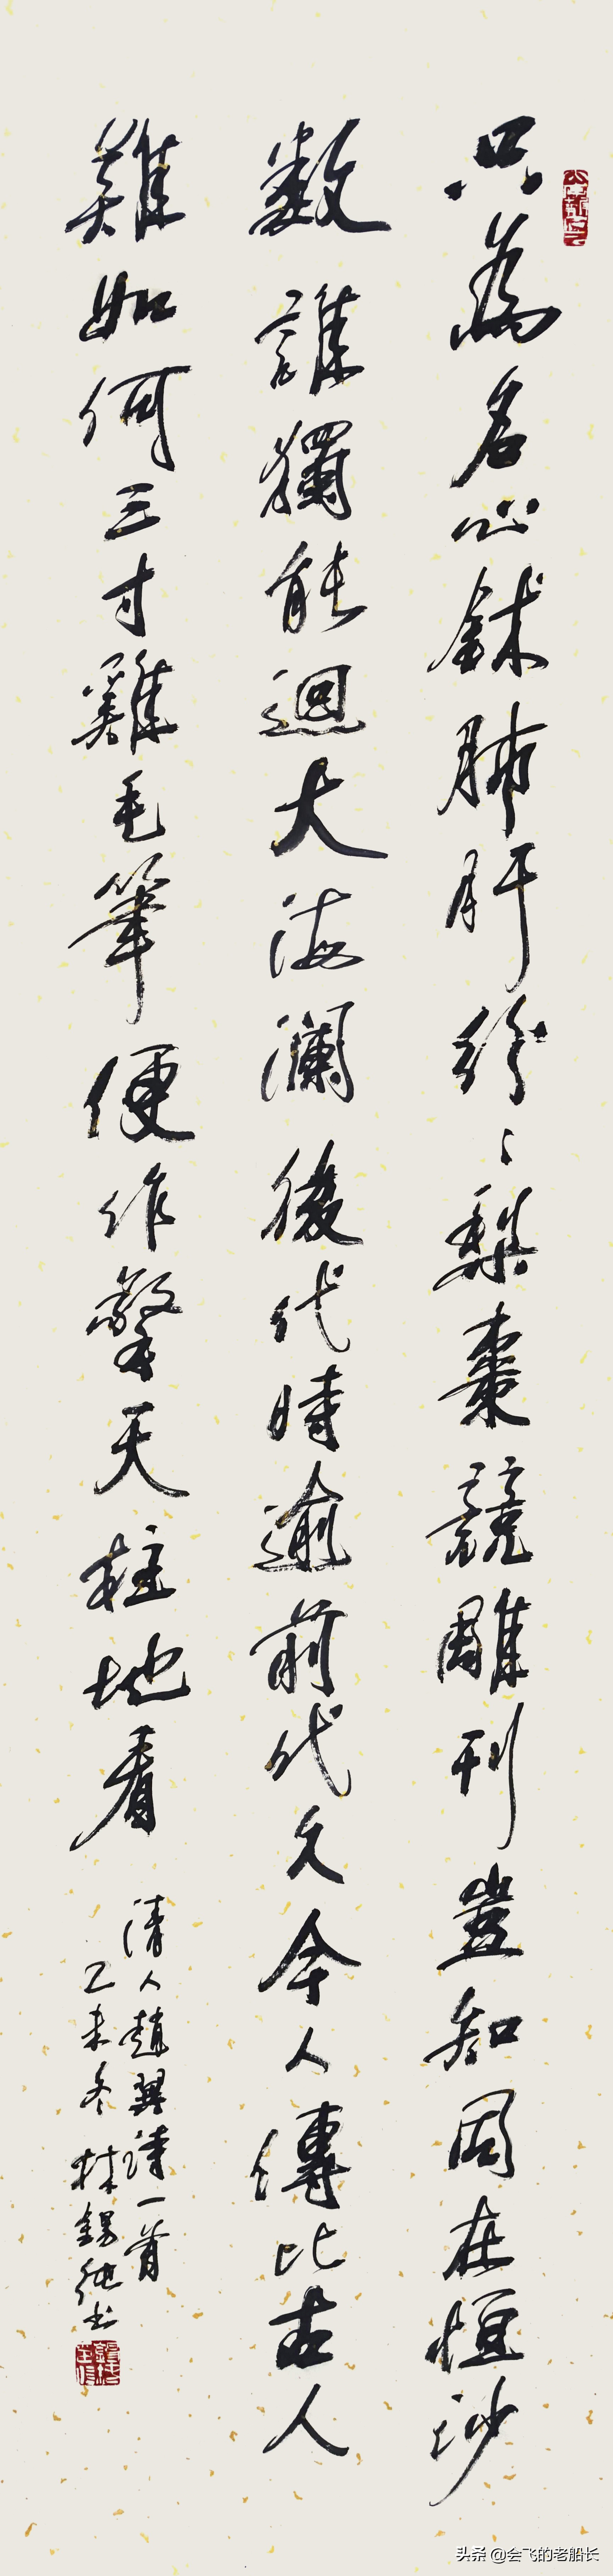 只為名心鉥肺肝紛〻梨棗競雕刊豈知同在恒沙
数誰獨能迴大海瀾後代時逾前代久今人傳比古人
難如何三寸雞毛筆便作擎天柱地看
清人趙翼詩一首
乙未冬林錫純书
头条 @会飞的老船长